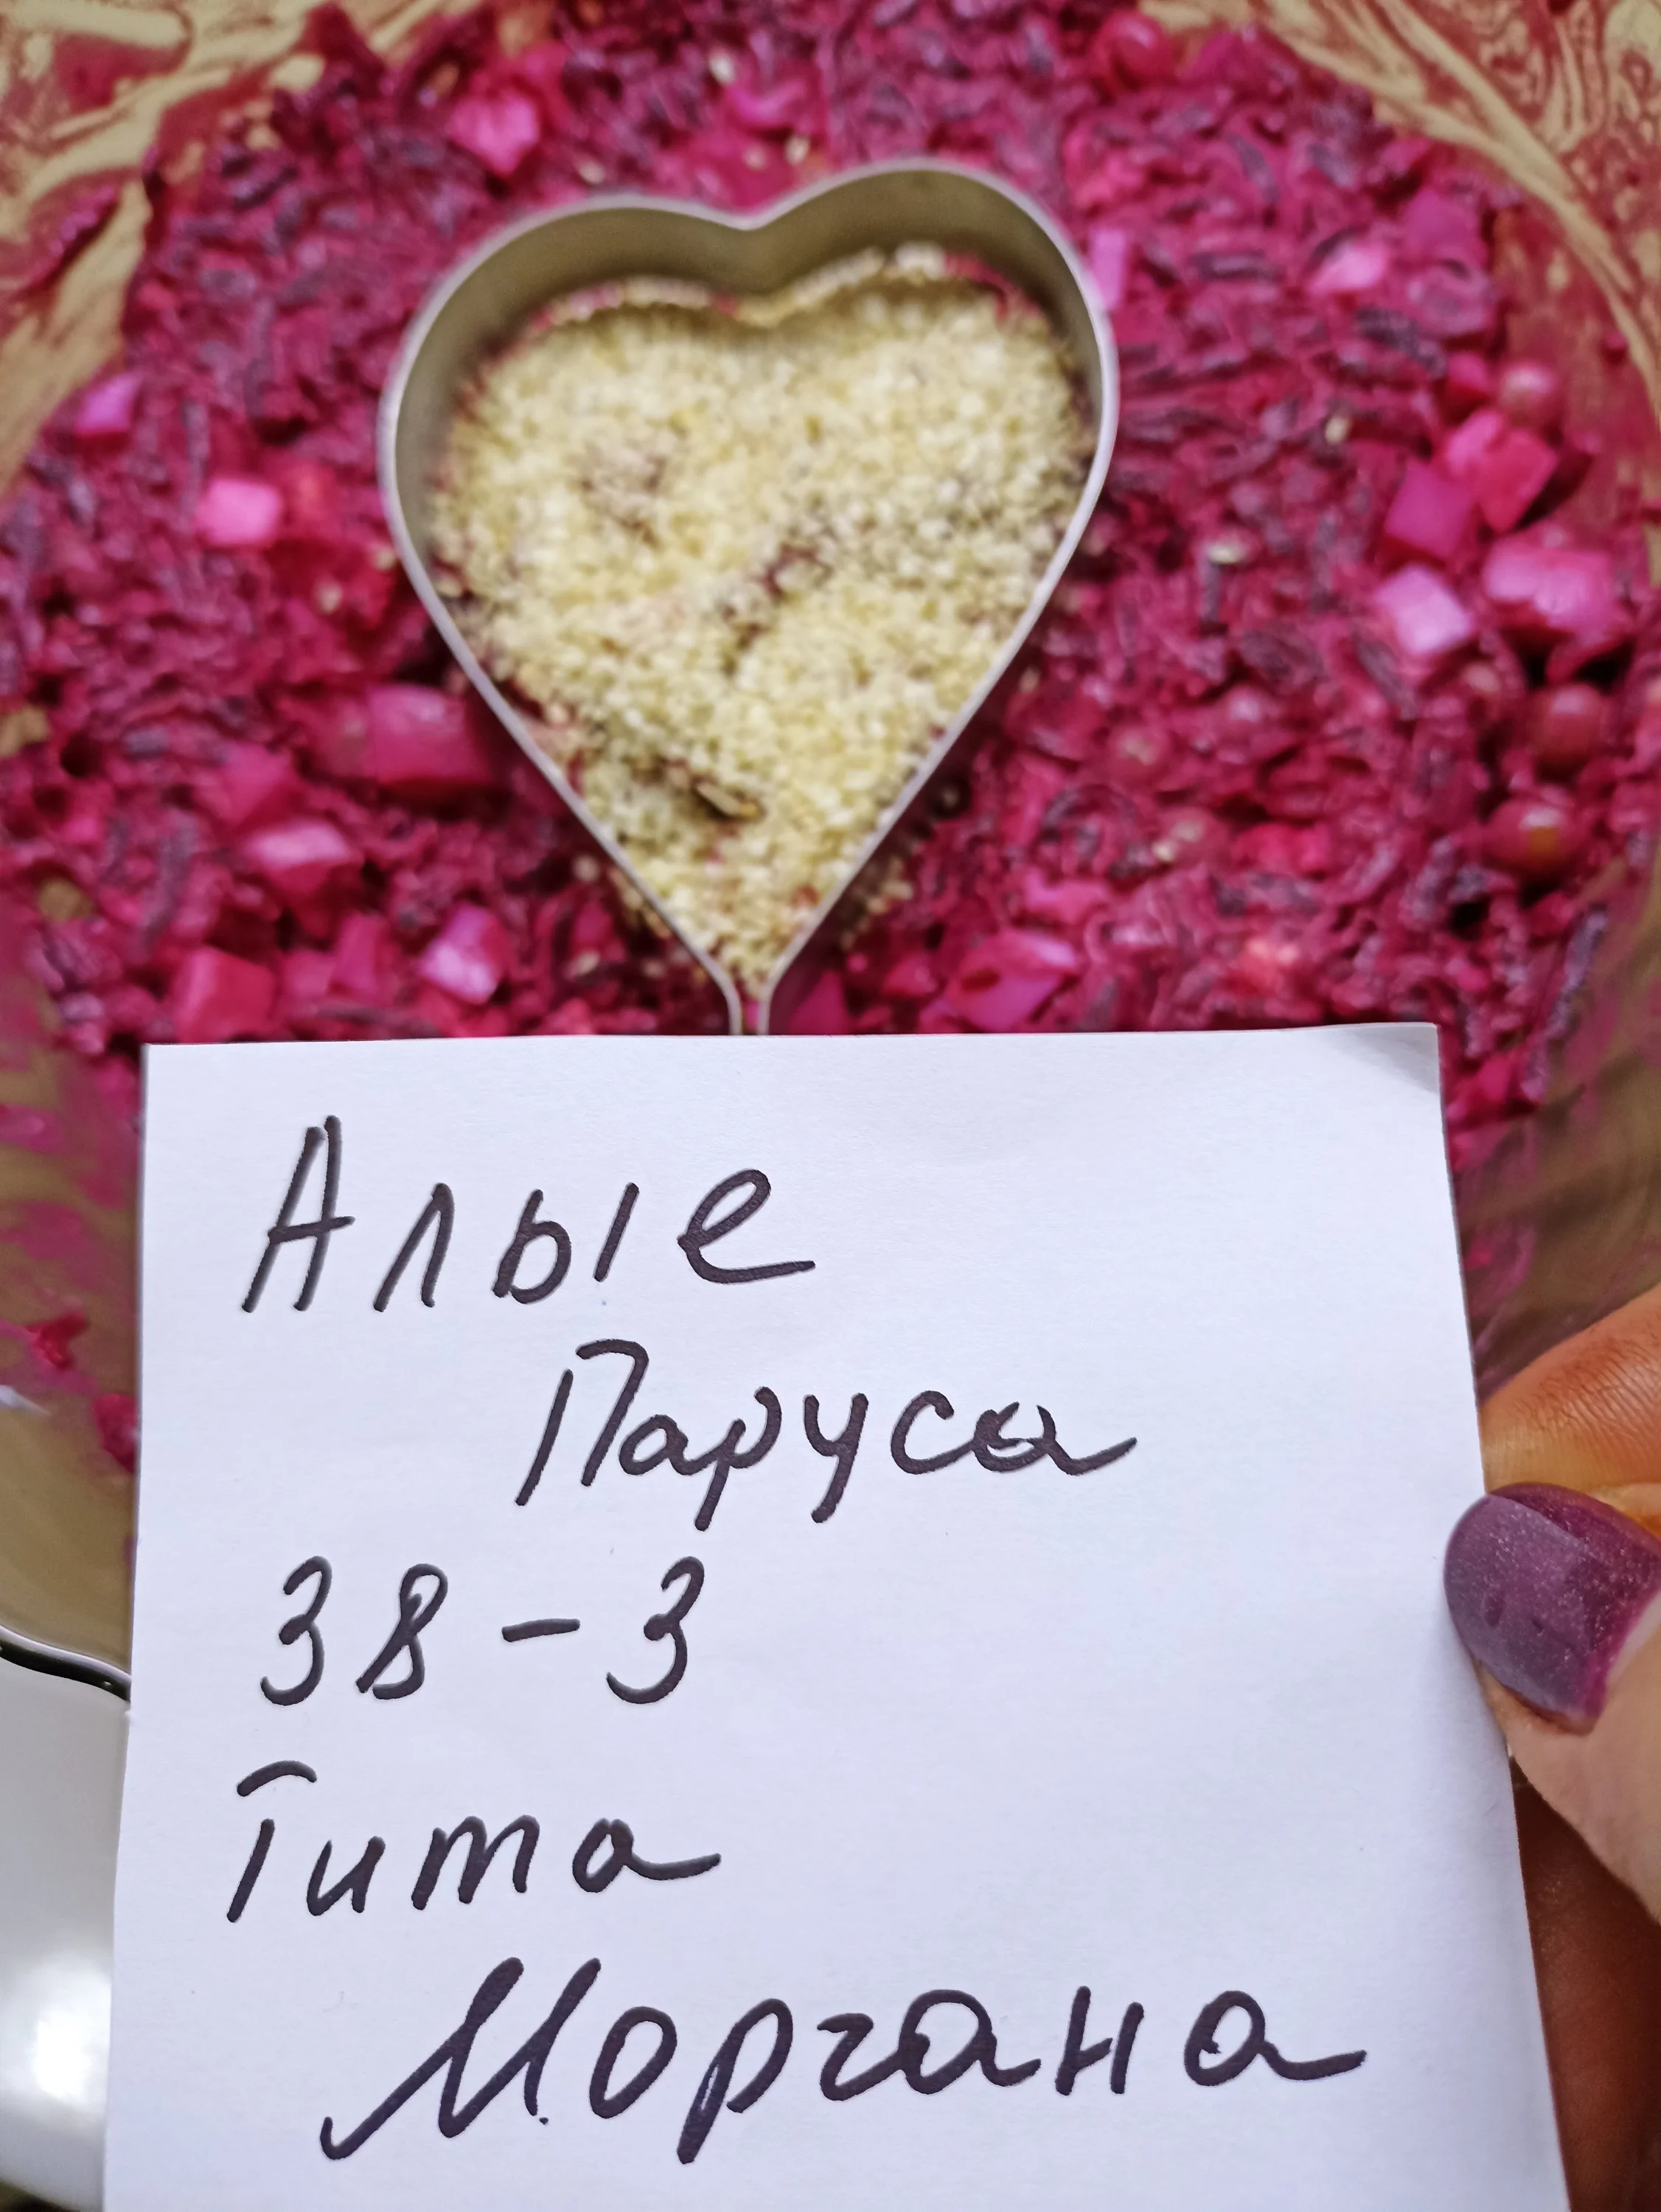 Алые
Паруса
38-3
Гита
Моргана